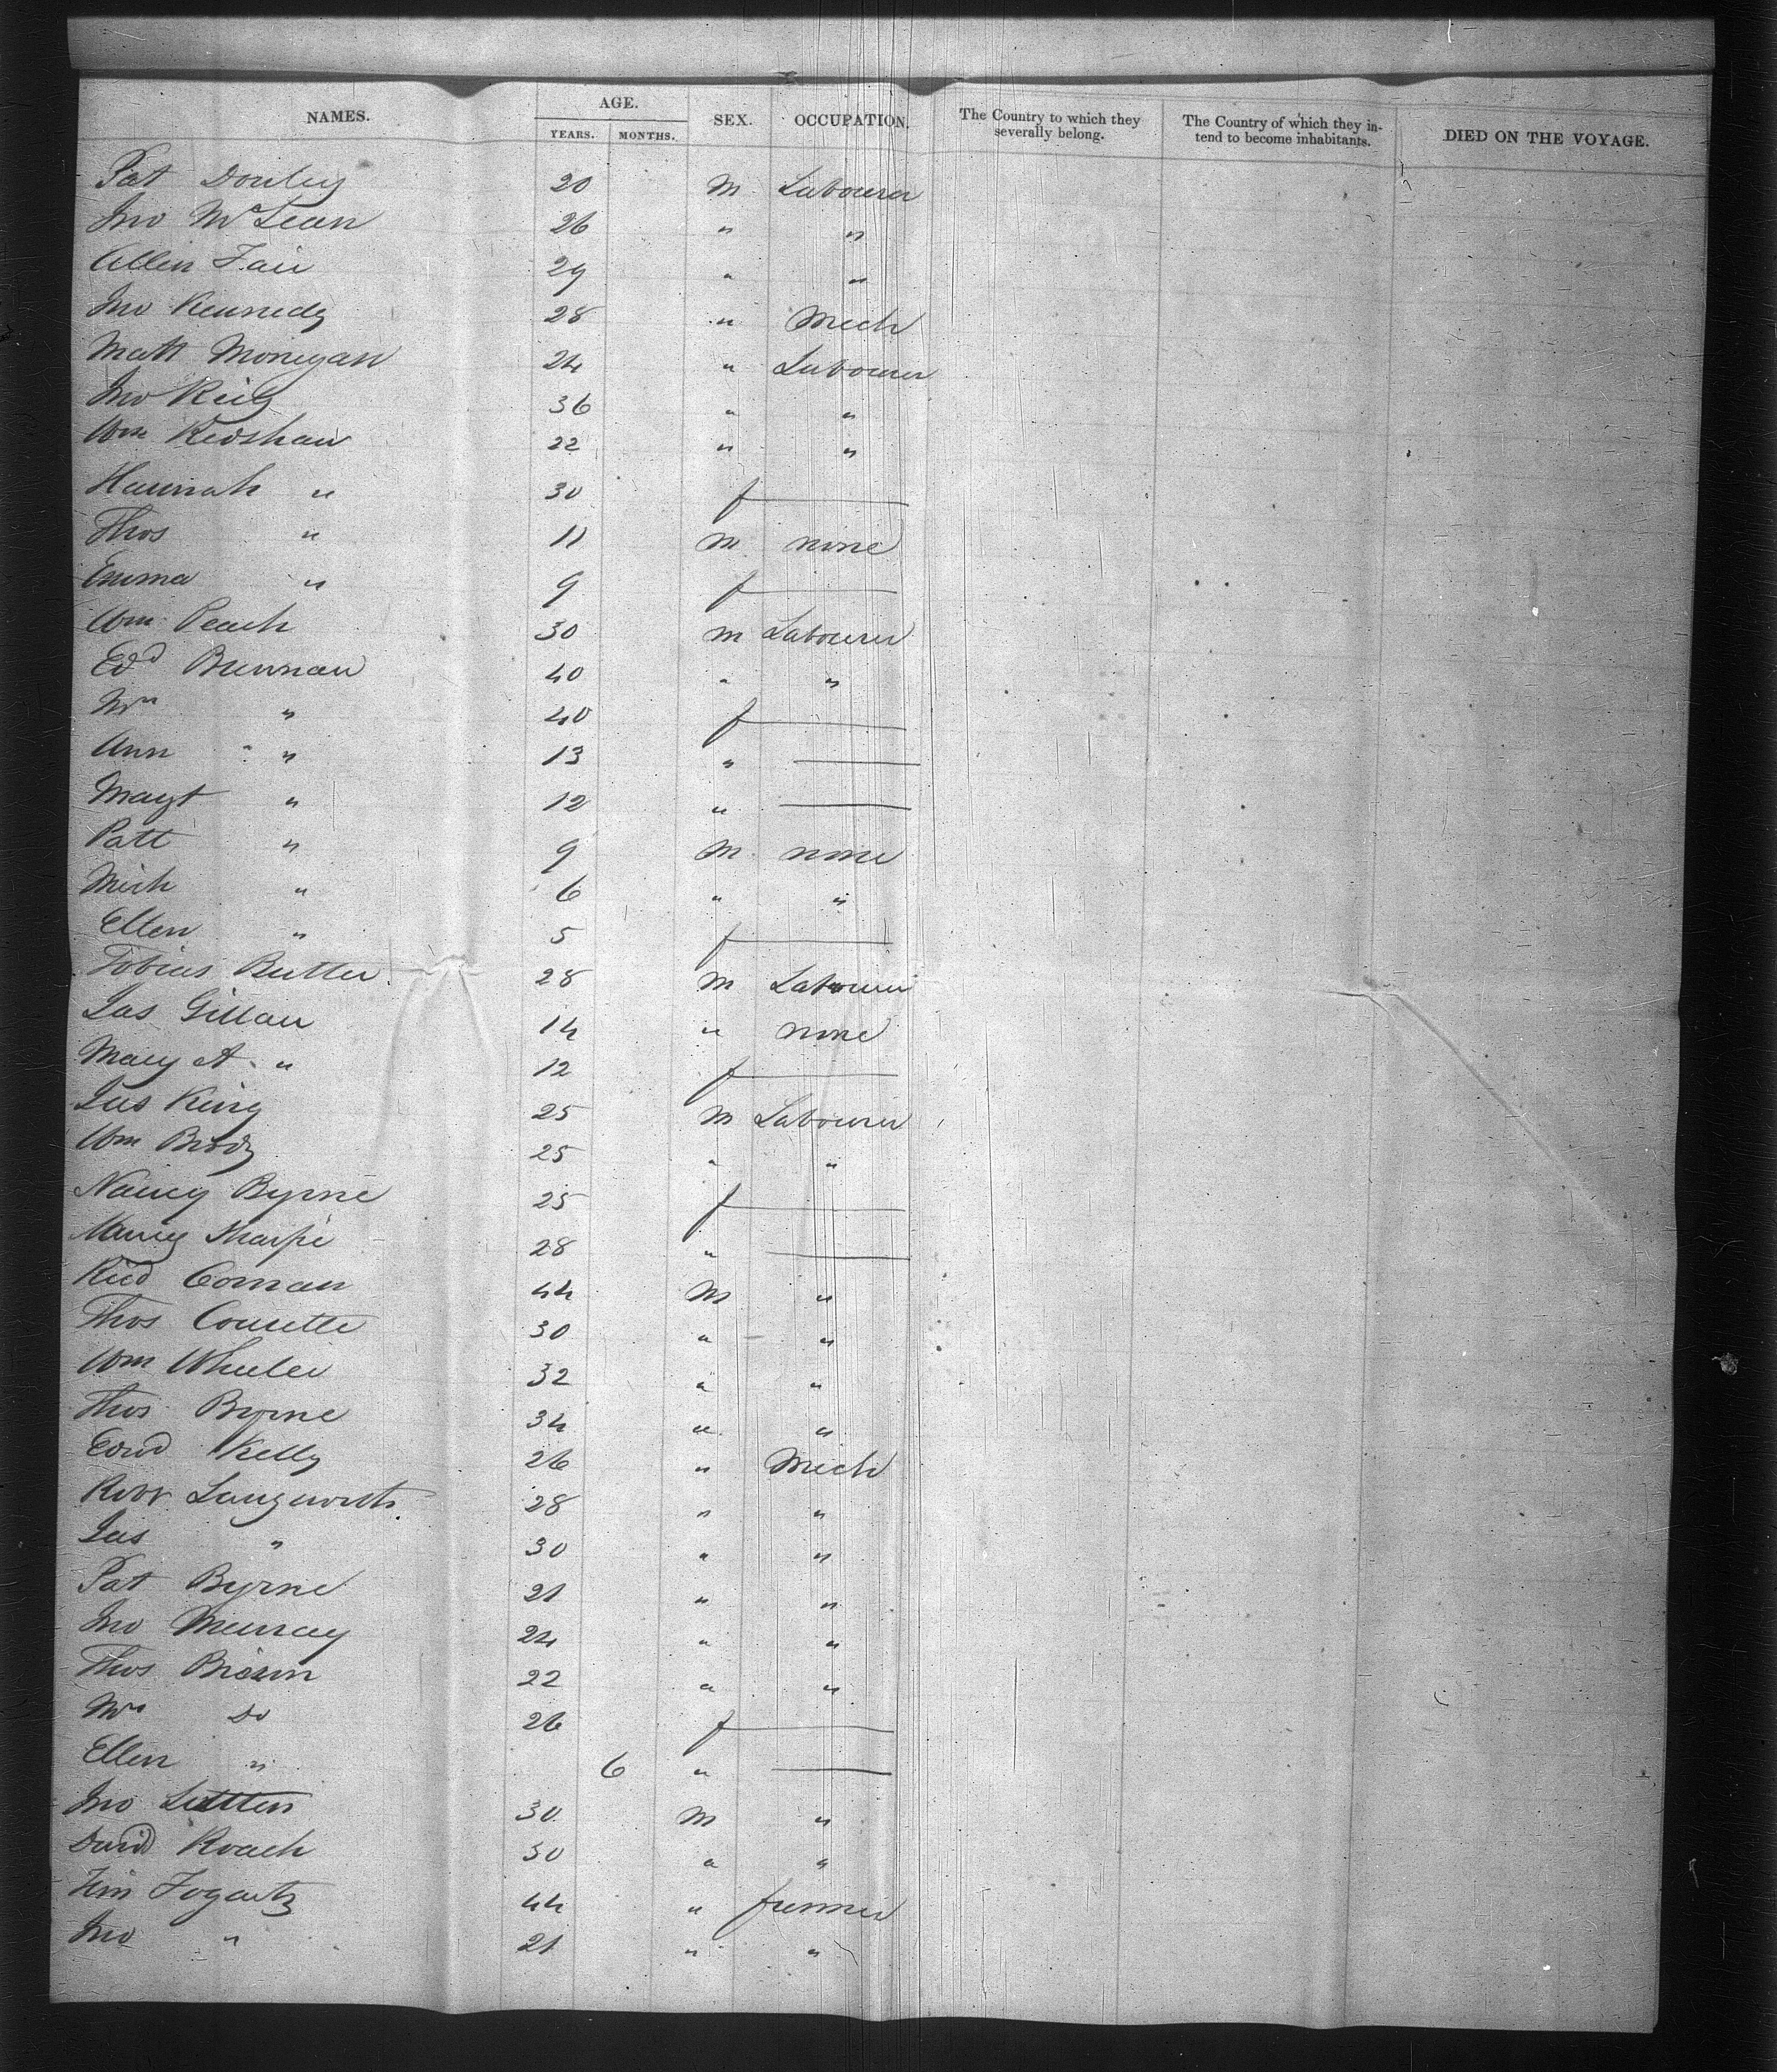 NAMES. AGE. SEX. OCCUPATION. The Country to which they severally belong. The Country of which they in- tend to become inhabitants. DIED ON THE VOYAGE.
YEARS. MONTHS.
Pat 20 M Labourer
Jno McLean 26 " "
Allen Fair 29 " "
Jno Kennedy 28 " Mech
Matt Monegan 24 " Labourer
Jno 36 " "
Wm Kedshaw 22 " "
Hannah " 30 f
Thos " 11 M none
Emma " 9 f
Wm Peach 30 M Labourer
Edd Brennan 40 " "
Mrs " 40 f
Ann " 13 "
Magt " 12 "
Patt " 9 M none
Mich " 6 " "
Ellen " 5 f
Tobias Butler 28 M Labourer
Jas Gillan 14 " none
Mary A " 12 f
Jas King 25 M Labourer
Wm Brody 25 " "
Nancy Byrne 25 f
Nancy Sharpe 28 "
Ricd Coman 44 M "
Thos 30 " "
Wm Wheeler 32 " "
Thos Byrne 34 " "
Edwd Kelly 26 " Mech
Robt Langworth 28 " "
Jas " 30 " "
Pat Byrne 21 " "
Jno Murray 24 " "
Thos 22 " "
Mrs Do 26 f
Ellen " 6 "
Jno 30 M "
David Roach 30 " "
Tim Fogarty 44 " farmer
Jno " 21 " "